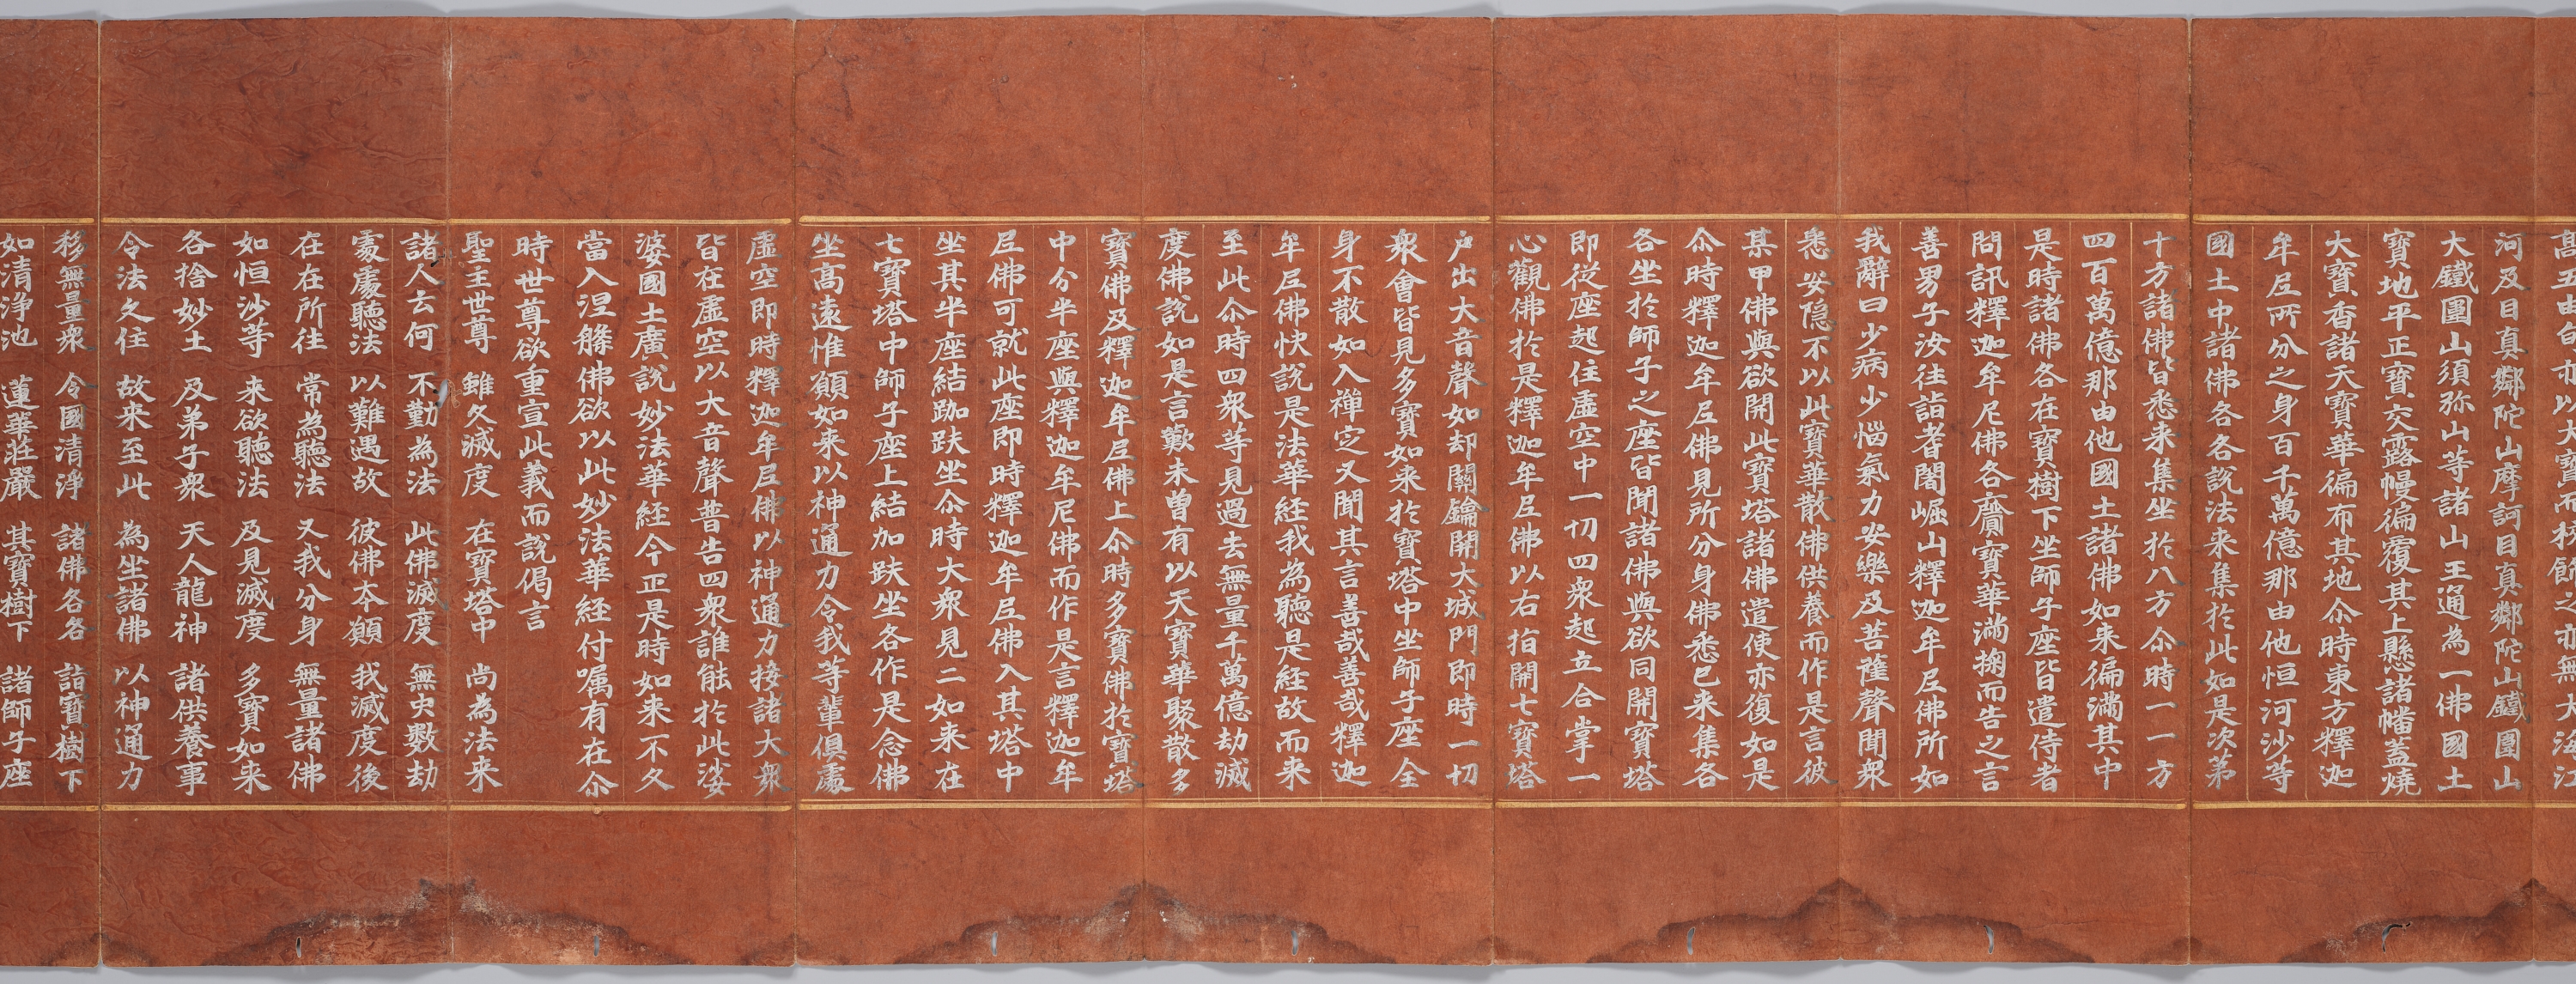 高五由旬亦以大寶而校飾之亦無大海江
河及目真鄰陀山摩訶目真鄰陀山鐵圍山
大鐵圍山須弥山等諸山王通為一佛國土
寶地平正寶交露幔徧覆其上懸諸幡蓋燒
大寶香諸天寶華徧布其地尒時東方釋迦
牟尼所分之身百千萬億那由他恒河沙等
國土中諸佛各各說法来集於此如是次第
十方諸佛皆悉来集坐於八方尒時一一方
四百萬億那由他國土諸佛如来徧滿其中
是時諸佛各在寶樹下坐師子座皆遣侍者
問訊釋迦牟尼佛各賷寶華滿掬而告之言
善男子汝往詣耆闍崛山釋迦牟尼佛所如
我辭曰少病少惱氣力安樂及菩薩聲聞衆
悉安隱不以此寶華散佛供養而作是言彼
某甲佛與欲開此寶塔諸佛遣使亦復如是
尒時釋迦牟尼佛見所分身佛悉已来集各
各坐於師子之座皆聞諸佛與欲同開寶塔
即從座起住虛空中一切四衆起立合掌一
心觀佛於是釋迦牟尼佛以右指開七寶塔
戶出大音聲如却關鑰開大城門即時一切
衆會皆見多寶如来於寶塔中坐師子座全
身不散如入禪定又聞其言善哉善哉釋迦
牟尼佛快說是法華経我為聽是経故而来
至此尒時四衆等見過去無量千萬億劫滅
度佛說如是言歎未曾有以天寶華聚散多
寶佛及釋迦牟尼佛上尒時多寶佛於寶塔
中分半座與釋迦牟尼佛而作是言釋迦牟
尼佛可就此座即時釋迦牟尼佛入其塔中
坐其半座結跏趺坐尒時大衆見二如来在
七寶塔中師子座上結加趺坐各作是念佛
坐高遠惟願如来以神通力令我等輩俱處
虛空即時釋迦牟尼佛以神通力接諸大衆
皆在虛空以大音聲普告四衆誰能於此娑
婆國土廣說妙法華経今正是時如来不久
當入涅槃佛欲以此妙法華経付囑有在尒
時世尊欲重宣此義而說偈言
聖主世尊 雖久滅度 在寶塔中 尚為法来
諸人云何 不勤為法 此佛滅度 無央數劫
處處聽法 以難遇故 彼佛本願 我滅度後
在在所往 常為聽法 又我分身 無量諸佛
如恒沙等 来欲聽法 及見滅度 多寶如来
各捨妙土 及弟子衆 天人龍神 諸供養事
令法久住 故来至此 為坐諸佛 以神通力
移無量衆 令國清淨 諸佛各各 詣寶樹下
如清淨池 蓮華莊嚴 其寶樹下 諸師子座